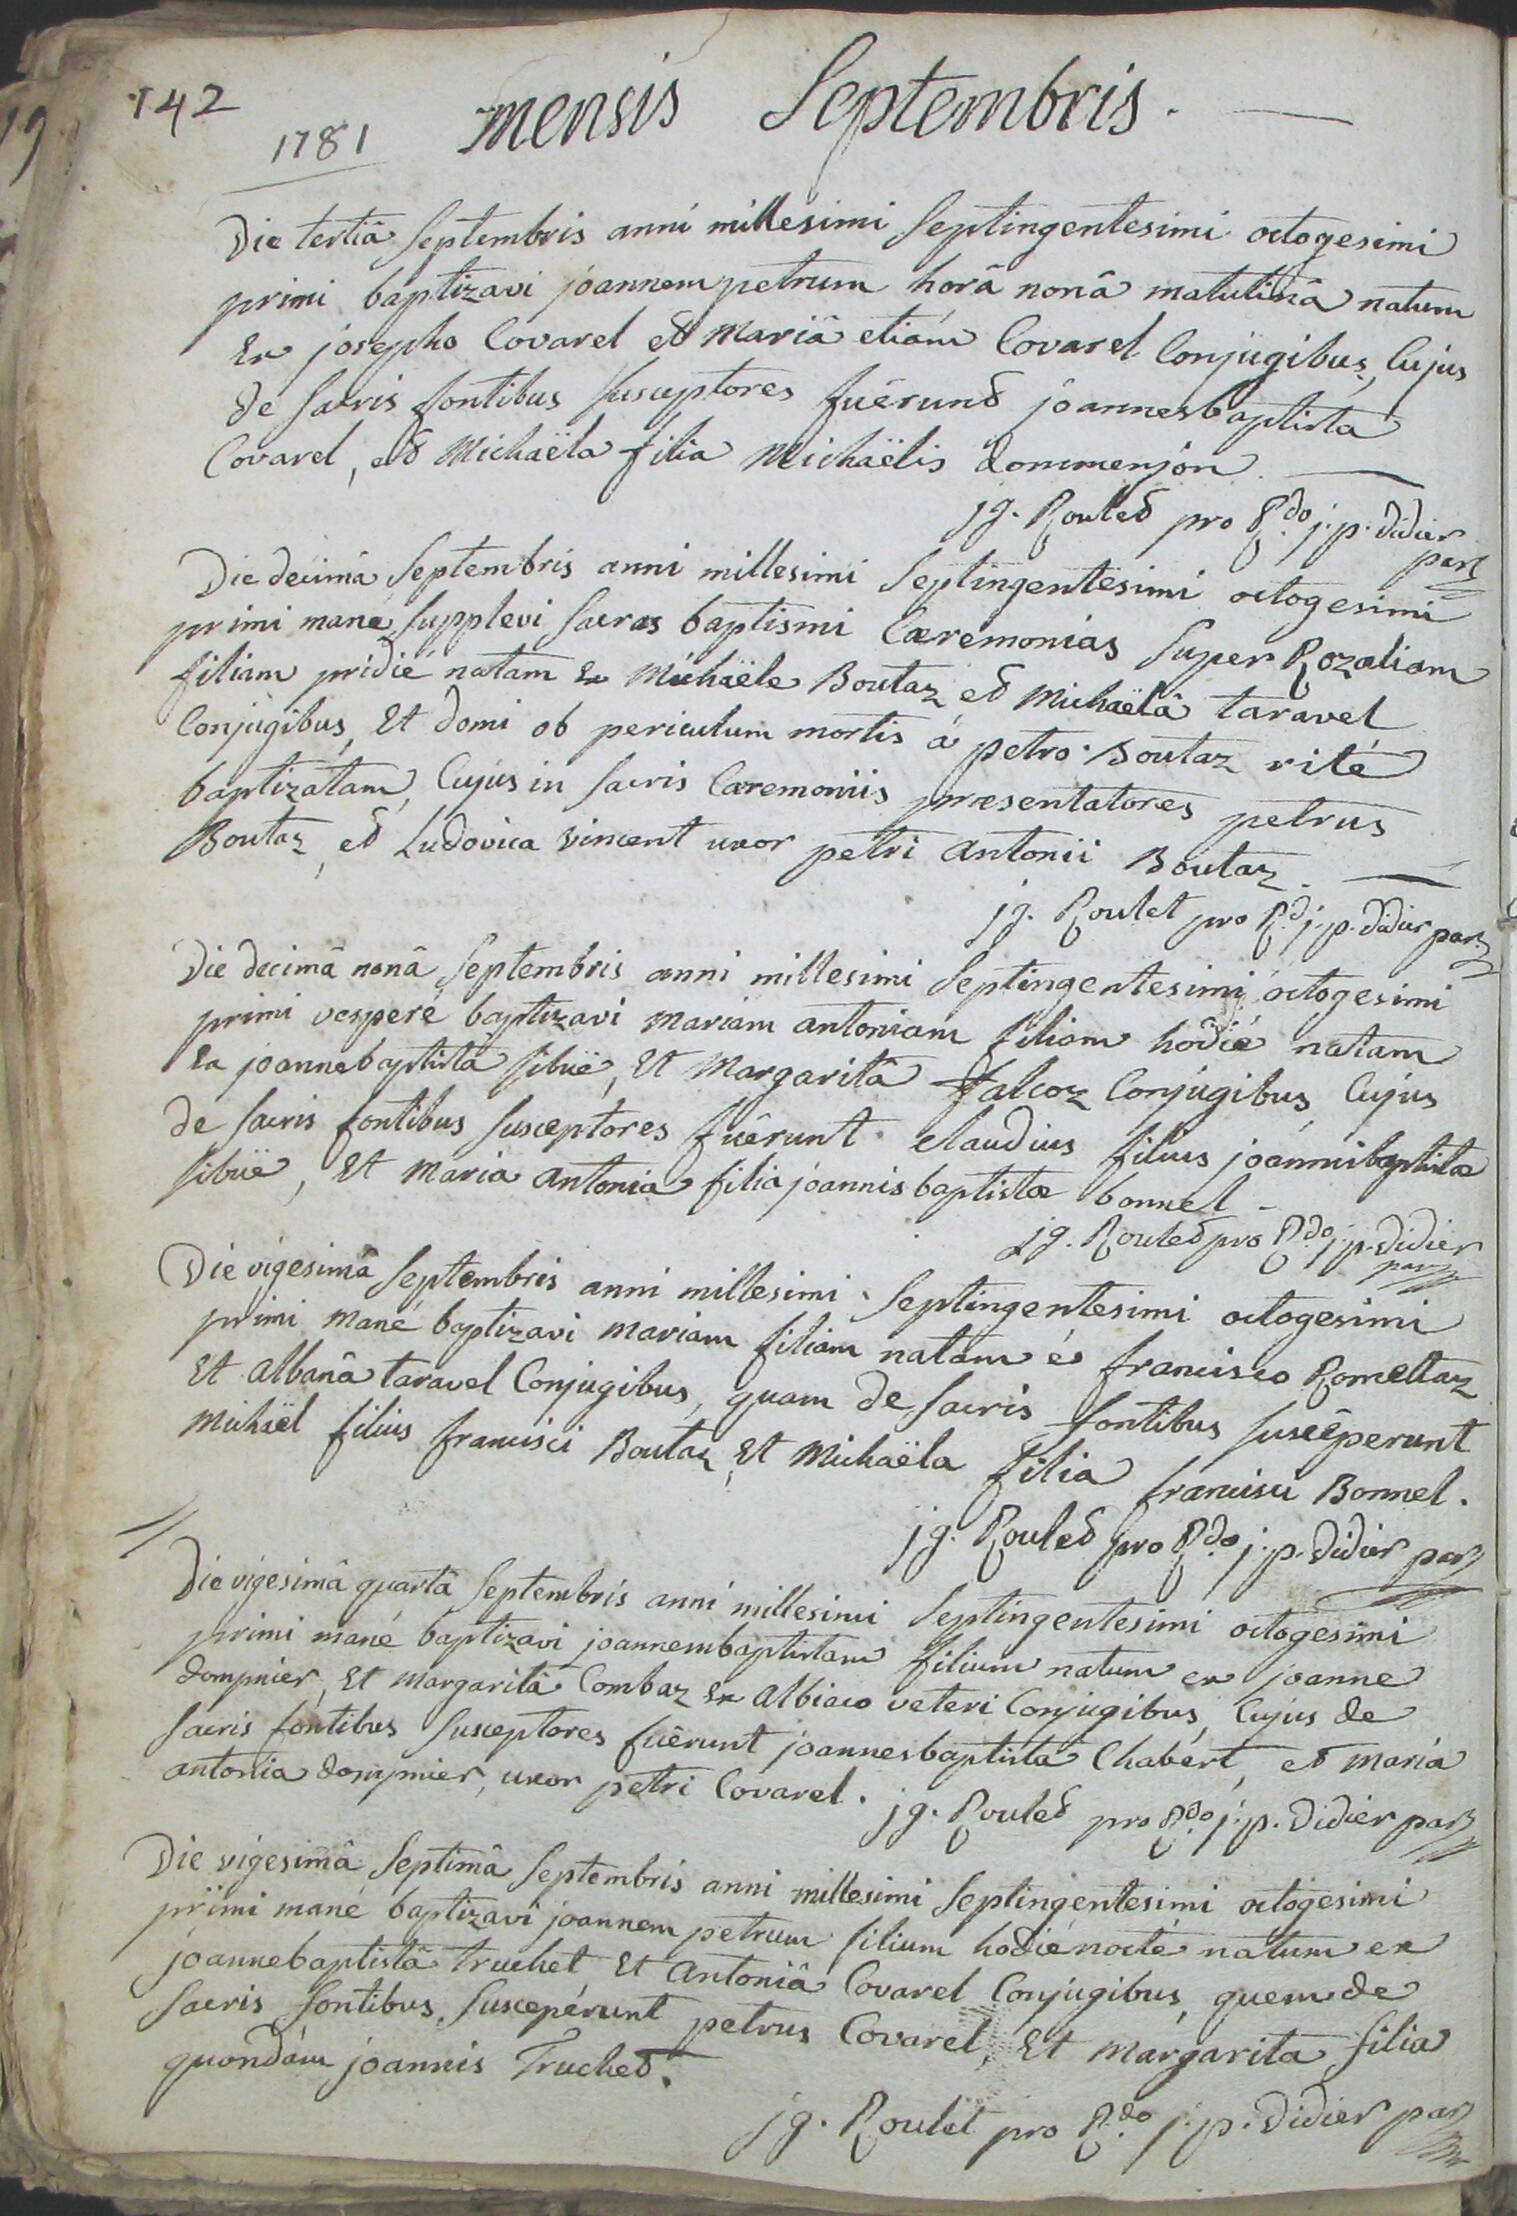 142
1781 mensis Septembris.
Die tertiâ Septembris anni millesimi Septingentesimi octogesimi
primi baptizavi joannem petrum horâ nonâ matutinâ natum
Ex josepho Covarel et Mariâ etiám Covarel Conjugibus, Cujus
de Sacris fontibus Susceptores fuêrunt joannesbaptista
Covarel, et Michaëla filia Michaëlis dommenjon.
jg. Roulet pro Rdo j. p. didier
par
Die decimâ Septembris anni millesimi Septingentesimi octogesimi
primi mané Supplevi Sacras baptismi Cæremonias Super Rozaliam
filiam pridié natam Ex Michaële Boutaz et Michaëlâ taravel
Conjugibus, Et domi ob periculum mortis á petro Boutaz rité
baptizatam, Cujus in Sacris Cæremoniis præsentatores petrus
Boutaz, et Ludovica Vincent uxor petri Antonii Boutaz.
jg. Roulet pro Rd j. p. didier par
Die decimâ nonâ Septembris anni millesimi Septingentesimi octogesimi
primi vesperé baptizavi Mariam antoniam filiam hodié natam
Ex joannebaptista Sibuë, Et Margaritâ falcoz Conjugibus, Cujus
de Sacris fontibus Susceptores fuêrunt claudius filius joannisbaptistæ
Sibuë, Et Maria Antonia filia joannis baptistæ bonnel -
jg. Roulet pro Rdo j. p. didier
par
Die vigesimâ Septembris anni millesimi Septingentesimi octogesimi
primi Mané baptizavi Mariam filiam natam é francisco Romettaz
Et Albanâ taravel Conjugibus, quam de Sacris fontibus Suscêperunt
Michaël filius francisci Boutaz, Et Michaëla filia francisci Bonnel.
jg. Roulet pro Rdo j. p. didier par
Die vigesimâ quartâ Septembris anni millesimi Septingentesimi octogesimi
primi mané baptizavi joannembaptistam filium natum ex joanne
dompnier, Et Margaritâ Combaz Ex Albiaco veteri Conjugibus, Cujus de
Sacris fontibus Susceptores fuêrunt joannesbaptista Chabert, et Maria
antonia dompnier, uxor petri Covarel. jg. Roulet pro Rdo j. p. didier par
Die vigesimâ Septimâ Septembris anni millesimi Septingentesimi octogesimi
primi mané baptizavi joannem petrum filium hodié nocté natum ex
joannebaptistâ truchet, Et Antoniâ Covarel Conjugibus, quem de
Sacris fontibus Suscepérunt petrus Covarel, Et Margarita filia
quondám joannis Truchet.
jg. Roulet pro Rdo j. p. didier par